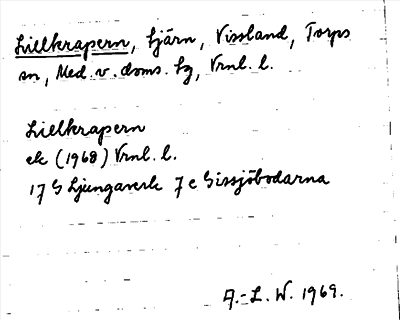 Lillkrapern, tjärn, Vissland, Torps
sn, Med. v. doms. tg, Vrnl. l.
Lillkrapern
ek (1968) Vrnl. l.
17 G Ljungaverk 7 c Gissjöbodarna
A.-L. W. 1969.